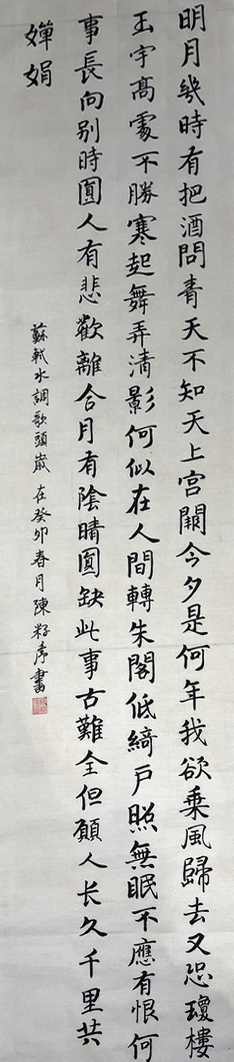 明月幾時有把酒問青天不知天上宮闕今夕是何年我欲乘風歸去又恐瓊樓
玉宇高處不勝寒起舞弄清影何似在人間轉朱閣低綺戶照無眠不應有恨何
事長向別時圓人有悲歡離合月有陰晴圓缺此事古難全但願人长久千里共
嬋娟
蘇軾水調歌頭歲在癸卯春月陳書